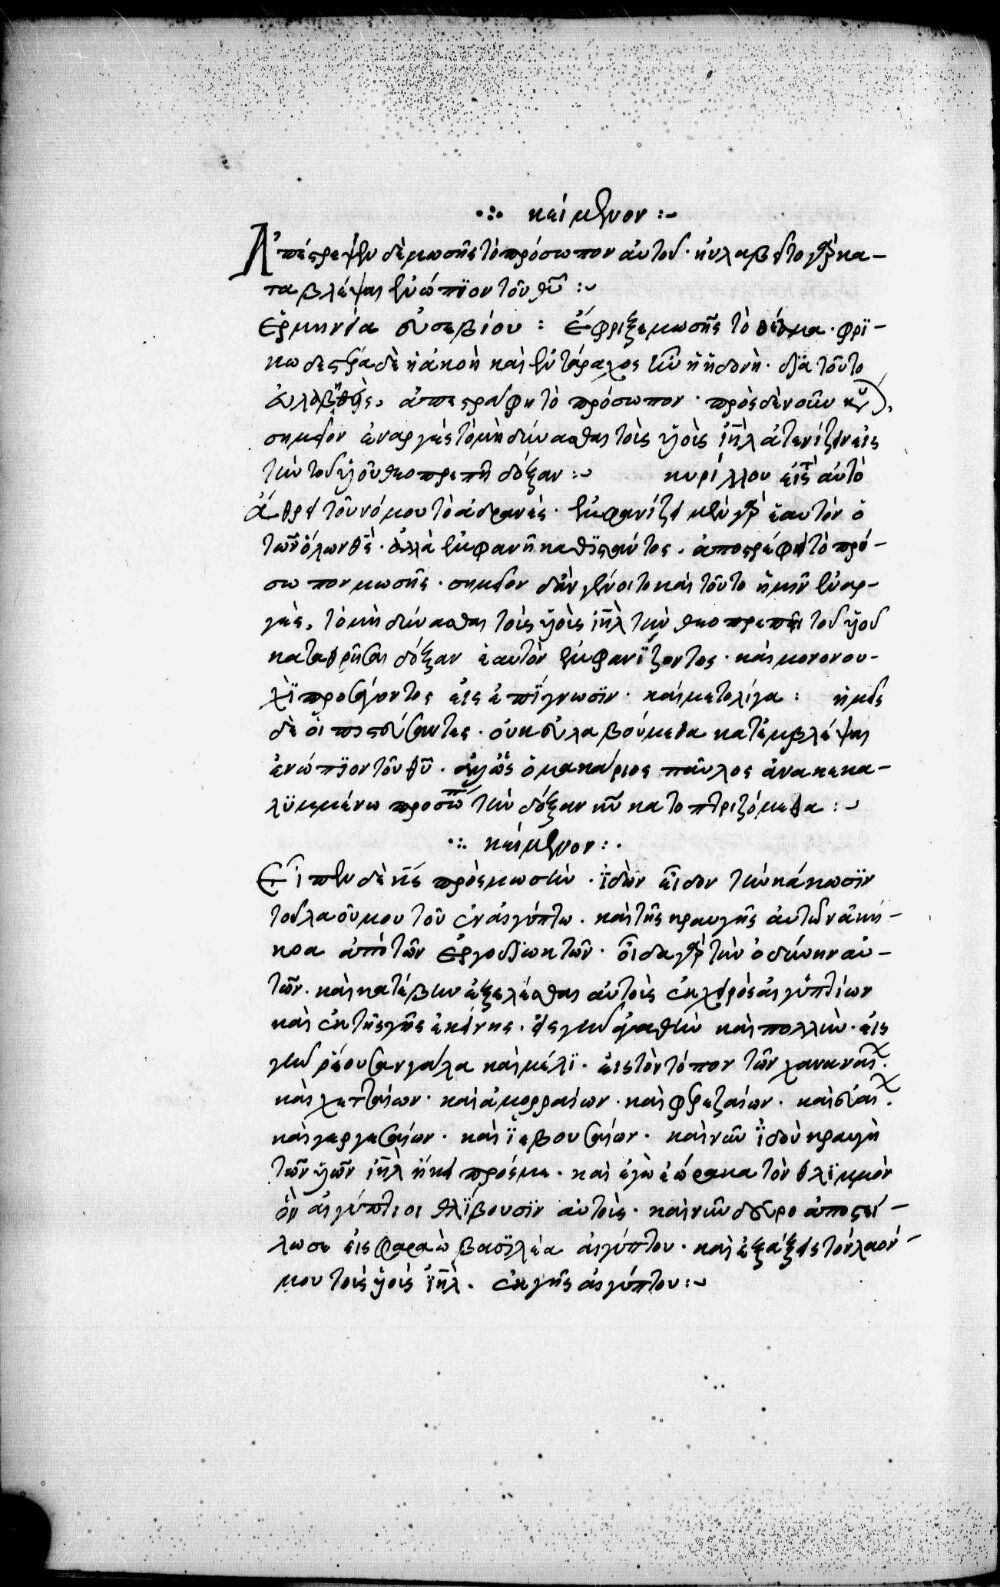 ∙:∙ κείμενον :~
Ἀπέστρεψεν δὲ μωσῆς τὸ πρόσωπον αὐτοῦ· ηὐλαβεῖτο γὰρ κα-
ταβλέψαι ἐνώπϊον τοῦ θῦ :~
ἑρμηνεία εὐσεβίου : ἔφριξε μωσῆς τὸ θέαμα· φρϊ-
κωδεστέρα δὲ ἡ ἀκοὴ καὶ ἐντάραχος ἦν ἡ ἡδονή· δϊὰ τοῦτο
εὐλαβηθεὶς, ἀπεστράφη τὸ πρόσωπον· πρὸς δὲ νοῦν
σημεῖον ἐναργὲς τὸ μὴ δύνασθαι τοὺς υἱοὺς ἰηλ ἀτενίζειν εἰς
τὴν τοῦ υἱοῦ θεοπρεπῆ δόξαν :~ κυρίλλου εἰς τὸ αὐτὸ
ἄθρει τοῦ νόμου τὸ ἀδρανὲς· ἐμφανίζει μὲν γὰρ ἑαυτὸν ὁ
τῶν ὅλων θς· ἀλλὰ ἐμφανῆ καθϊστάντος, ἀποστρέφει τὸ πρό-
σωπον μωσῆς· σημεῖον δ' ἂν γένοιτο καὶ τοῦτο ἡμῖν ἐναρ-
γὲς, τὸ μὴ δύνασθαι τοὺς υἱοὺς ἰηλ τὴν θεοπρεπῆ τοῦ υἱοῦ
καταθρῆσαι δόξαν ἑαυτὸν ἐμφανίζοντος· καὶ μονονου-
χὶ προσάγοντος εἰς ἐπίγνωσϊν· καὶ μετ' ὀλίγα : ἡμεῖς
δὲ οἱ πιστεύσαντες· οὐκ εὐλαβούμεθα κατεμβλέψαι
ἐνώπϊον τοῦ θῦ· ὁ μακάριος παῦλος ἀνακεκα-
λϋμμένω προσώπω τὴν δόξαν κυ κατοπτριζόμεθα :~
∙:∙ κείμενον :∙
Εἶπεν δὲ κς πρὸς μωσῆν· ἰδὼν εἶδον τὴν κάκωσϊν
τοῦ λαοῦ μου τοῦ ἐν αἰγύπτω· καὶ τῆς κραυγῆς αὐτῶν ἀκή-
κοα ἀπὸ τῶν ἐργοδϊωκτῶν· οἶδα γὰρ τὴν ὀδύνην αὐ-
τῶν· καὶ κατέβην ἐξελέσθαι αὐτοὺς ἐκ χειρὸς αἰγυπτίων
καὶ ἐκ τῆς γῆς ἐκείνης· εἰς γῆν ἀγαθὴν καὶ πολλὴν· εἰς
γῆν ῥέουσαν γάλα καὶ μέλϊ· εἰς τὸν τόπον τῶν χαναναί
καὶ χετταίων· καὶ ἀμορραίων· καὶ φερεζαίων· καὶ εὐαί
καὶ γεργεσαίων· καὶ ϊεβουσαίων· καὶ νῦν ἰδοὺ κραυγὴ
τῶν υἱῶν ἰηλ ἥκει πρός με· καὶ ἐγὼ ἑώρακα τὸν θλϊμμὸν
ὃν αἰγύπτιοι θλίβουσϊν αὐτοὺς· καὶ νῦν δεῦρο ἀποστεί-
λω σε εἰς φαραὼ βασϊλέα αἰγύπτου· καὶ ἐξάξεις τὸν λαόν
μου τοὺς υἱοὺς ἰηλ. ἐκ γῆς αἰγύπτου :~